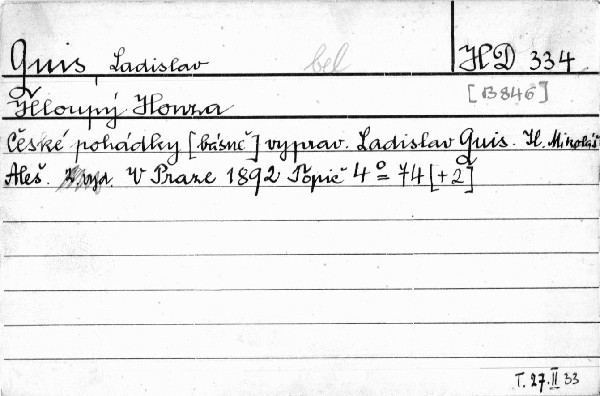 Quis, Ladislav bel HD 334
[B 846]
Hloupý Honza
České pohádky [básně] vyprav. Ladislav Quis. Il. Mikoláš
Aleš. 2. vyd. V Praze 1892 Topič 4° 74 [+2]
T. 27. II 33